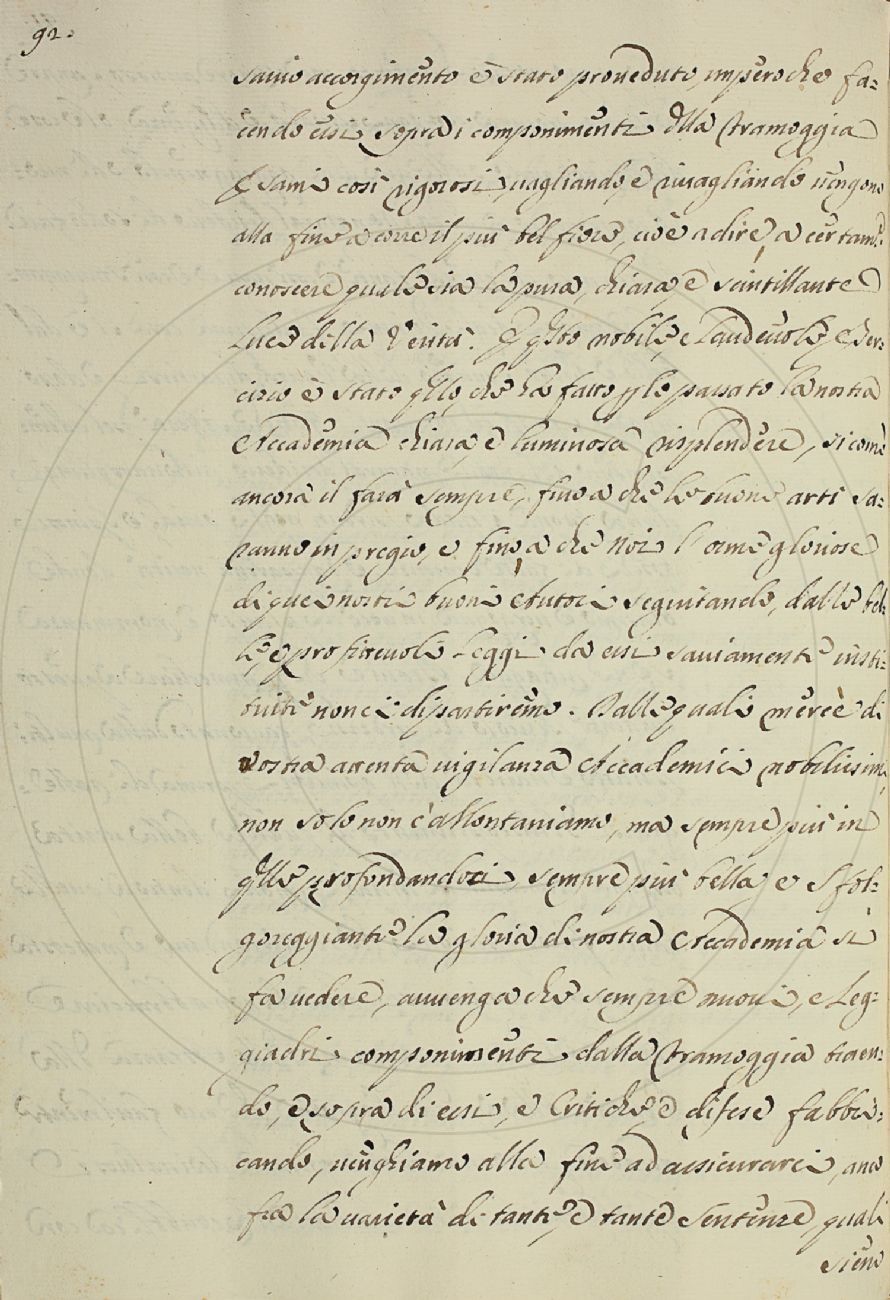 92.
savio accorgimento è stato proveduto, imperoche fa=
cendo essi sopra i componimenti dlla Tramoggia
Esami così rigorosi, vagliando, e rivagliando vengono
alla fine a corre il più bel fiore, cioè a dire, a certamte.
conoscere quale sia la pura, chiara, e scintillante
Luce della Verità. E qsto nobile, e laudevole Eser=
cizio è stato qllo, che ha fatto p lo passato la nostra
Accademia chiara, e luminosa risplendere, si come
ancora il farà sempre, fino a che le buone arti sa=
ranno in pregio, e fino a che noi l'orme gloriose
di quei nostri buoni Autori seguitando, dalle bel=
le, e profittevoli Leggi da essi saviamente insti=
tuite non ci dipartiremo. Dalle quali mercè di
vostra attenta vigilanza Accademici nobilissimi,
non solo non c'allontaniamo, ma sempre più in
qlle profondandoci, sempre più bella, e sfol=
goreggiante la gloria di nostra Accademia si
fa vedere, avvenga che sempre nuovi, e Leg=
giadri componimenti dalla Tramoggia traen=
do, e sopra di essi, e Critiche, e difese fabbri=
cando, venghiamo alla fine ad assicurarci, anco
fra la varietà di tante, e tante Sentenze, quali
sieno